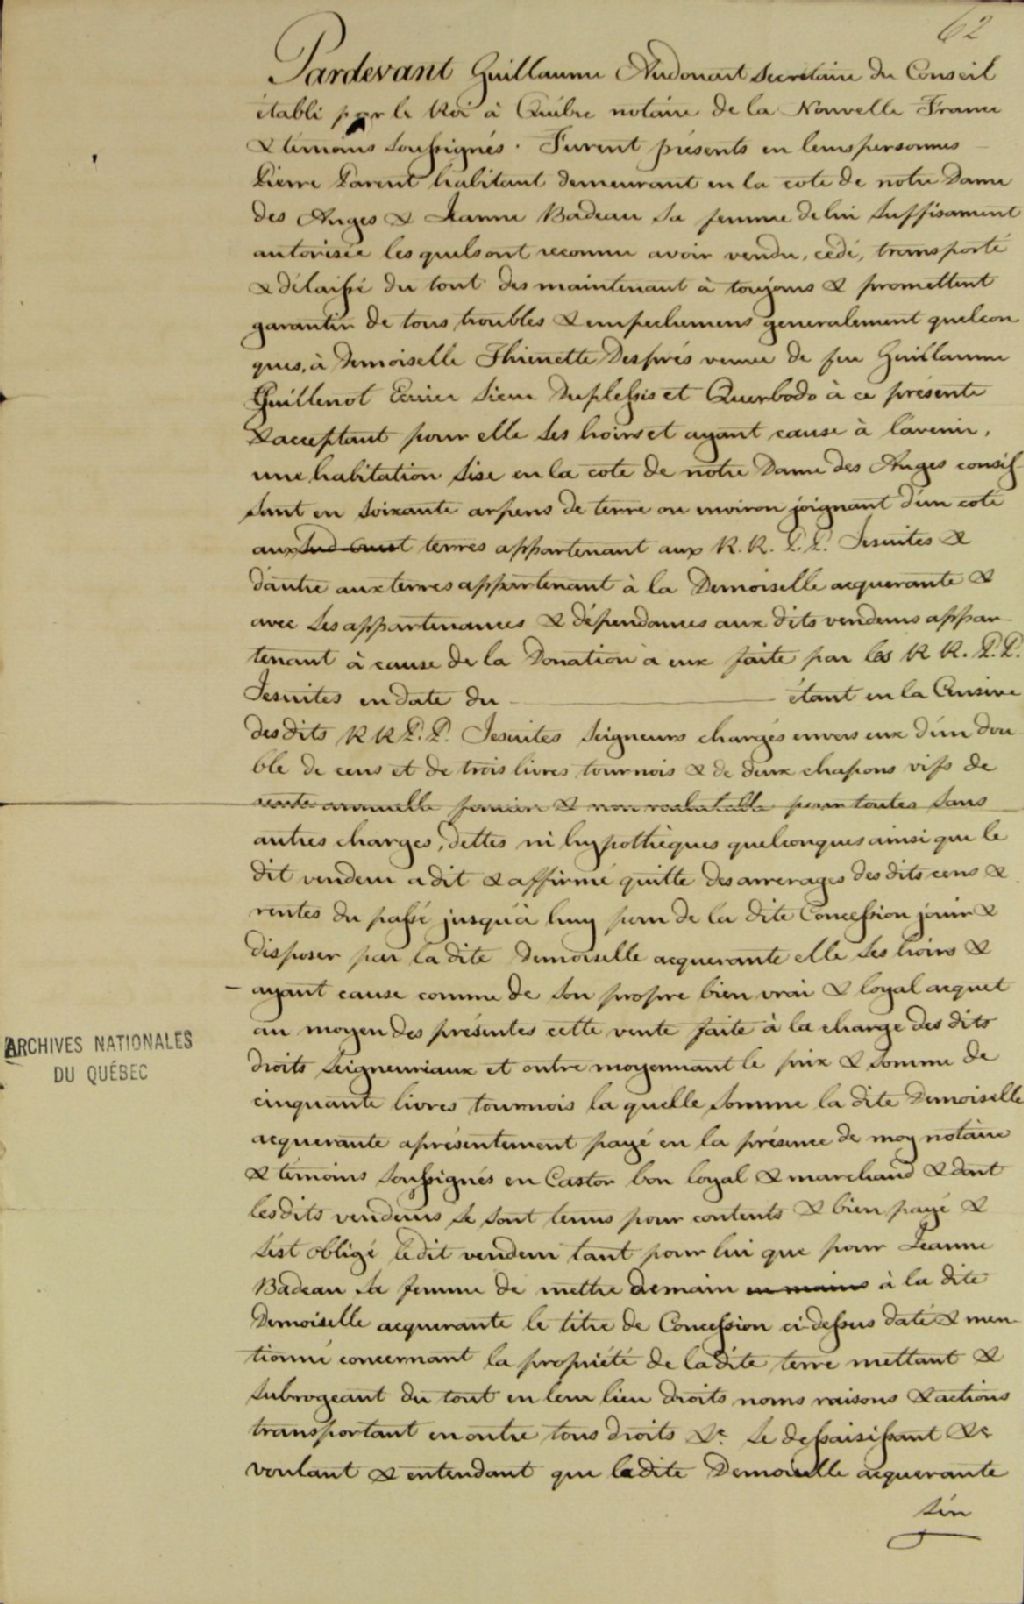 62
Pardevant Guillaume Audouart Secretaire du Conseil
établi par le Roi à Québec notaire de la Nouvelle France
& témoins soussignés. Furent présents en leurs personnes
Pierre Parent habitant demeurant en la cote de notre Dame
des Anges & Jeanne Badeau sa femme de lui suffisament
autorisée lesquels ont reconnu avoir vendu, cédé, transporté
& délaissé du tout des maintenant à toujours & promettent
garantir de tous troubles & empechemens generalement quelcon
ques, à Demoiselle Thienette Després veuve de feu Guillaume
Guillenot Ecuier Sieur Duplessis et Querbodo à ce présente
& acceptant pour elle ses hoirs et ayant cause à l'avenir,
une habitation sise en la cote de notre Dame des Anges consis
sant en soixante arpens de terre ou environ joignant d'un coté
aux Sud-ouest terres appartenant aux R. R. P. P. Jesuites &
d'autre aux terres appartenant à la Demoiselle acquerante &
avec ses appartenances & dépendances aux dits vendeurs appar
tenant à cause de la Donation à eux faite par les R R. P. P.
Jesuites en date du étant en la Censive
des dits R R P. P. Jesuites Seigneurs chargés envers eux d'un dou
ble de cens et de trois livres tournois & de deux chapons vifs de
rente annuelle fonciere & non rachatable pour toutes sans
autres charges, dettes ni hypothèques quelconques ainsi que le
dit vendeur a dit & affirmé quitte des arrerages des dits cens &
rentes du passé jusqu'à huy pour de la dite Concession jouir &
disposer par la dite Demoiselle acquerante elle ses hoirs &
ayant cause comme de son propre bien vrai & loyal acquet
au moyen des présentes cette vente faite à la charge des dits
droits Seigneuriaux et outre moyennant le prix & somme de
cinquante livres tournois la quelle somme la dite Demoiselle
acquerante a présentement payé en la présence de moy notaire
& témoins soussignés en Castor bon loyal & marchand & dont
les dits vendeurs se sont tenus pour contents & bien payé &
s'est obligé le dit vendeur tant pour lui que pour Jeanne
Badeau sa femme de mettre demain en mains à la dite
Demoiselle acquerante le titre de Concession ci-dessus daté & men-
tionné concernant la propriété de la dite terre mettant &
subrogeant du tout en leur lieu droits noms raisons & actions
transportant en outre tous droits &c. se dessaisissant &c
voulant & entendant que la dite Demoiselle acquerante
s'en
ARCHIVES NATIONALES
DU QUÉBEC